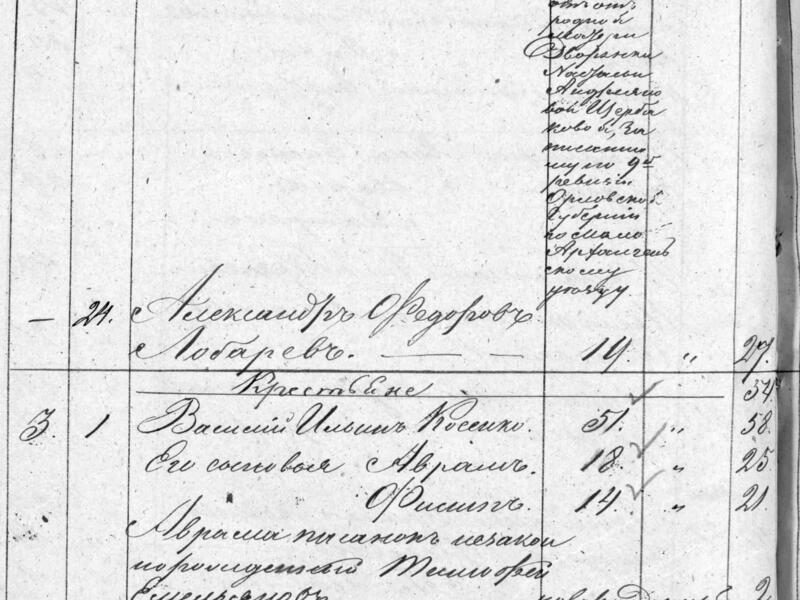 родной
матери
Дворянки
Натальи
Андреяно
вой Щерба
ковой, за
писанно
му по 9й
ревизіи
Орловской
Губерніи
по Мало
Архангель
скому
уѣзду
— 24. Александръ Федоровъ
Лобаревъ. — — — 19 „ 27
Крестьяне 54
3. 1 Василій Ильинъ Косенко. 51. „ 58.
Его сыновья Аврамъ. 18 „ 25
Филипъ 14 „ 21
Аврама писанокъ незакон
порожденный Тимофей
Емельяновъ 2